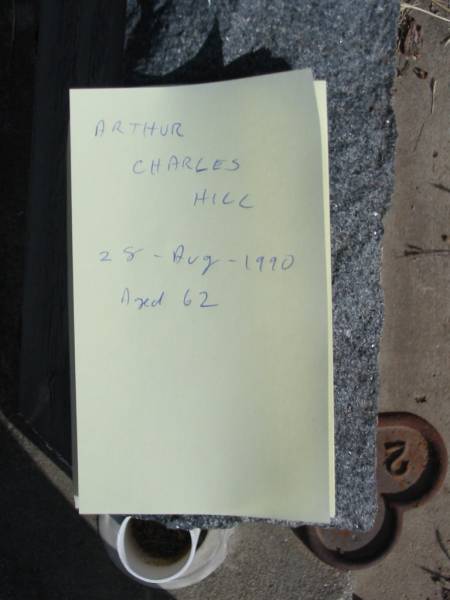 ARTHUR
CHARLES
HILL
28 - Aug - 1990
Aged 62
2